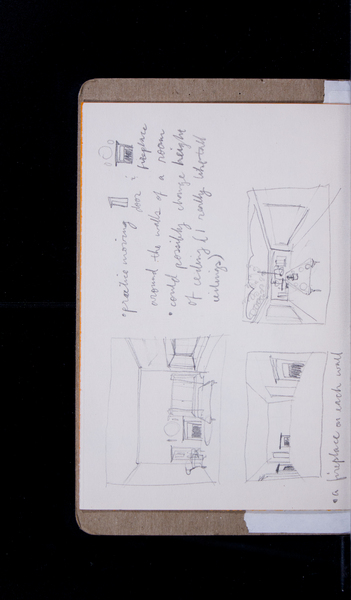 • practice moving door & fireplace
around the walls of a room
• could possibly change height
of ceiling (I really like tall
ceilings)
• a fireplace on each wall